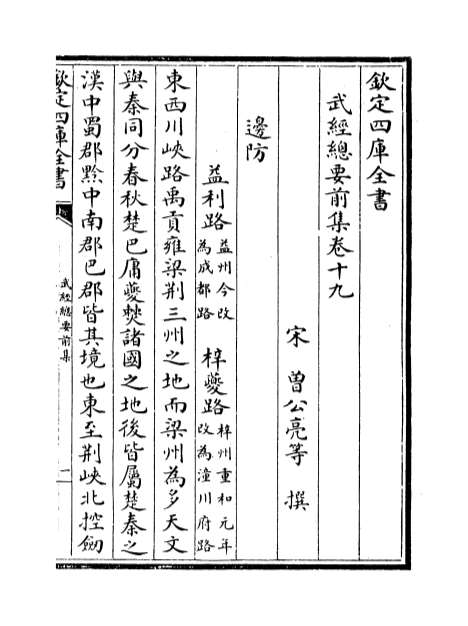 欽定四庫全書
武經總要前集卷十九
宋 曾公亮等 撰
邊防
益利路 益州今改為成都路 梓夔路 梓州重和元年改為潼川府路
東西川峽路禹貢雍梁荆三州之地而梁州為多天文
與秦同分春秋楚巴庸夔僰諸國之地後皆屬楚秦之
漢中蜀郡黔中南郡巴郡皆其境也東至荆峽北控劒
欽定四庫全書
武經總要前集
一